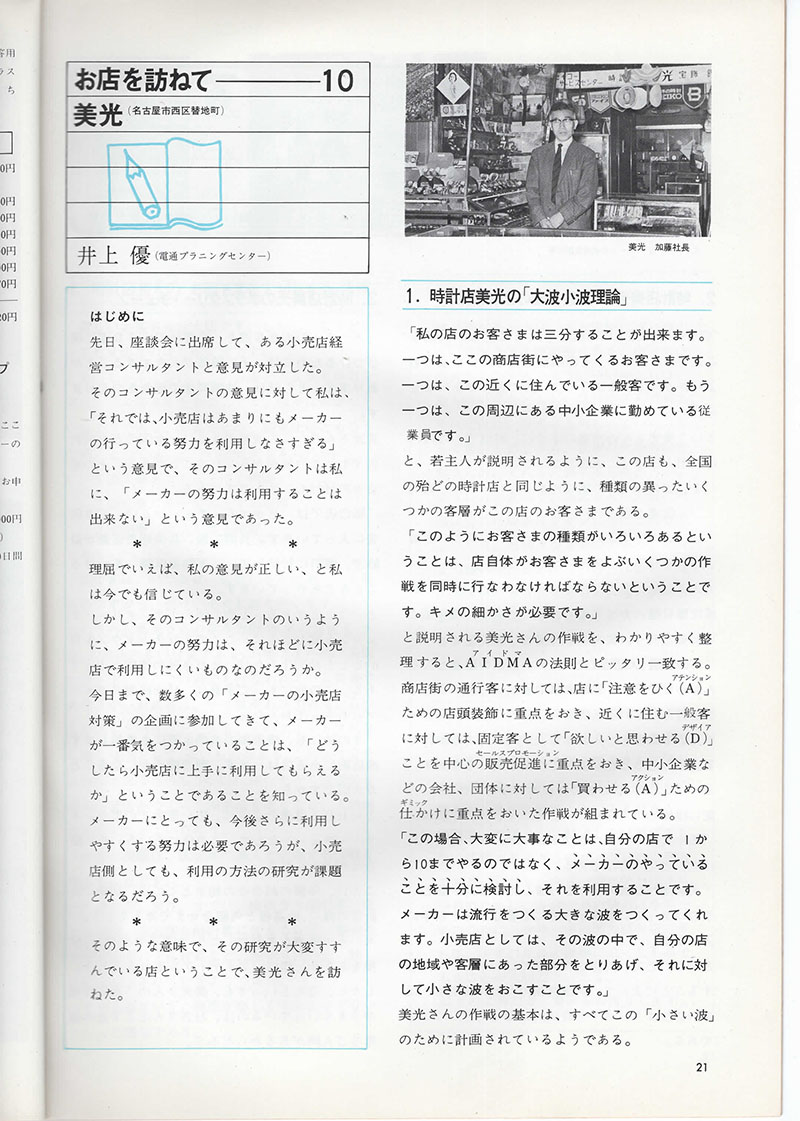 お店を訪ねて――――10
美光(名古屋市西区替地町)
井上 優(電通プラニングセンター)
はじめに
先日、座談会に出席して、ある小売店経
営コンサルタントと意見が対立した。
そのコンサルタントの意見に対して私は、
「それでは、小売店はあまりにもメーカー
の行っている努力を利用しなさすぎる」
という意見で、そのコンサルタントは私
に、「メーカーの努力は利用することは
出来ない」という意見であった。
* * *
理屈でいえば、私の意見が正しい、と私
は今でも信じている。
しかし、そのコンサルタントのいうよう
に、メーカーの努力は、それほどに小売
店で利用しにくいものなのだろうか。
今日まで、数多くの「メーカーの小売店
対策」の企画に参加してきて、メーカー
が一番気をつかっていることは、「どう
したら小売店に上手に利用してもらえる
か」ということであることを知っている。
メーカーにとっても、今後さらに利用し
やすくする努力は必要であろうが、小売
店側としても、利用の方法の研究が課題
となるだろう。
* * *
そのような意味で、その研究が大変すす
んでいる店ということで、美光さんを訪
ねた。
美光 加藤社長
1. 時計店美光の「大波小波理論」
「私の店のお客さまは三分することが出来ます。
一つは、ここの商店街にやってくるお客さまです。
一つは、この近くに住んでいる一般客です。もう
一つは、この周辺にある中小企業に勤めている従
業員です。」
と、若主人が説明されるように、この店も、全国
の殆どの時計店と同じように、種類の異ったいく
つかの客層がこの店のお客さまである。
「このようにお客さまの種類がいろいろあるとい
うことは、店自体がお客さまをよぶいくつかの作
戦を同時に行なわなければならないということで
す。キメの細かさが必要です。」
と説明される美光さんの作戦を、わかりやすく整
アイドマ
理すると、AIDMAの法則とピッタリ一致する。
アテンション
商店街の通行客に対しては、店に「注意をひく(A)」
ための店頭装飾に重点をおき、近くに住む一般客
デザイア
に対しては、固定客として「欲しいと思わせる(D)」
セールスプロモーション
ことを中心の販売促進に重点をおき、中小企業な
アクション
どの会社、団体に対しては「買わせる(A)」ための
ギミック
仕かけに重点をおいた作戦が組まれている。
「この場合、大変に大事なことは、自分の店で 1か
ら10までやるのではなく、メーカーのやっている
ことを十分に検討し、それを利用することです。
メーカーは流行をつくる大きな波をつくってくれ
ます。小売店としては、その波の中で、自分の店
の地域や客層にあった部分をとりあげ、それに対
して小さな波をおこすことです。」
美光さんの作戦の基本は、すべてこの「小さい波」
のために計画されているようである。
21